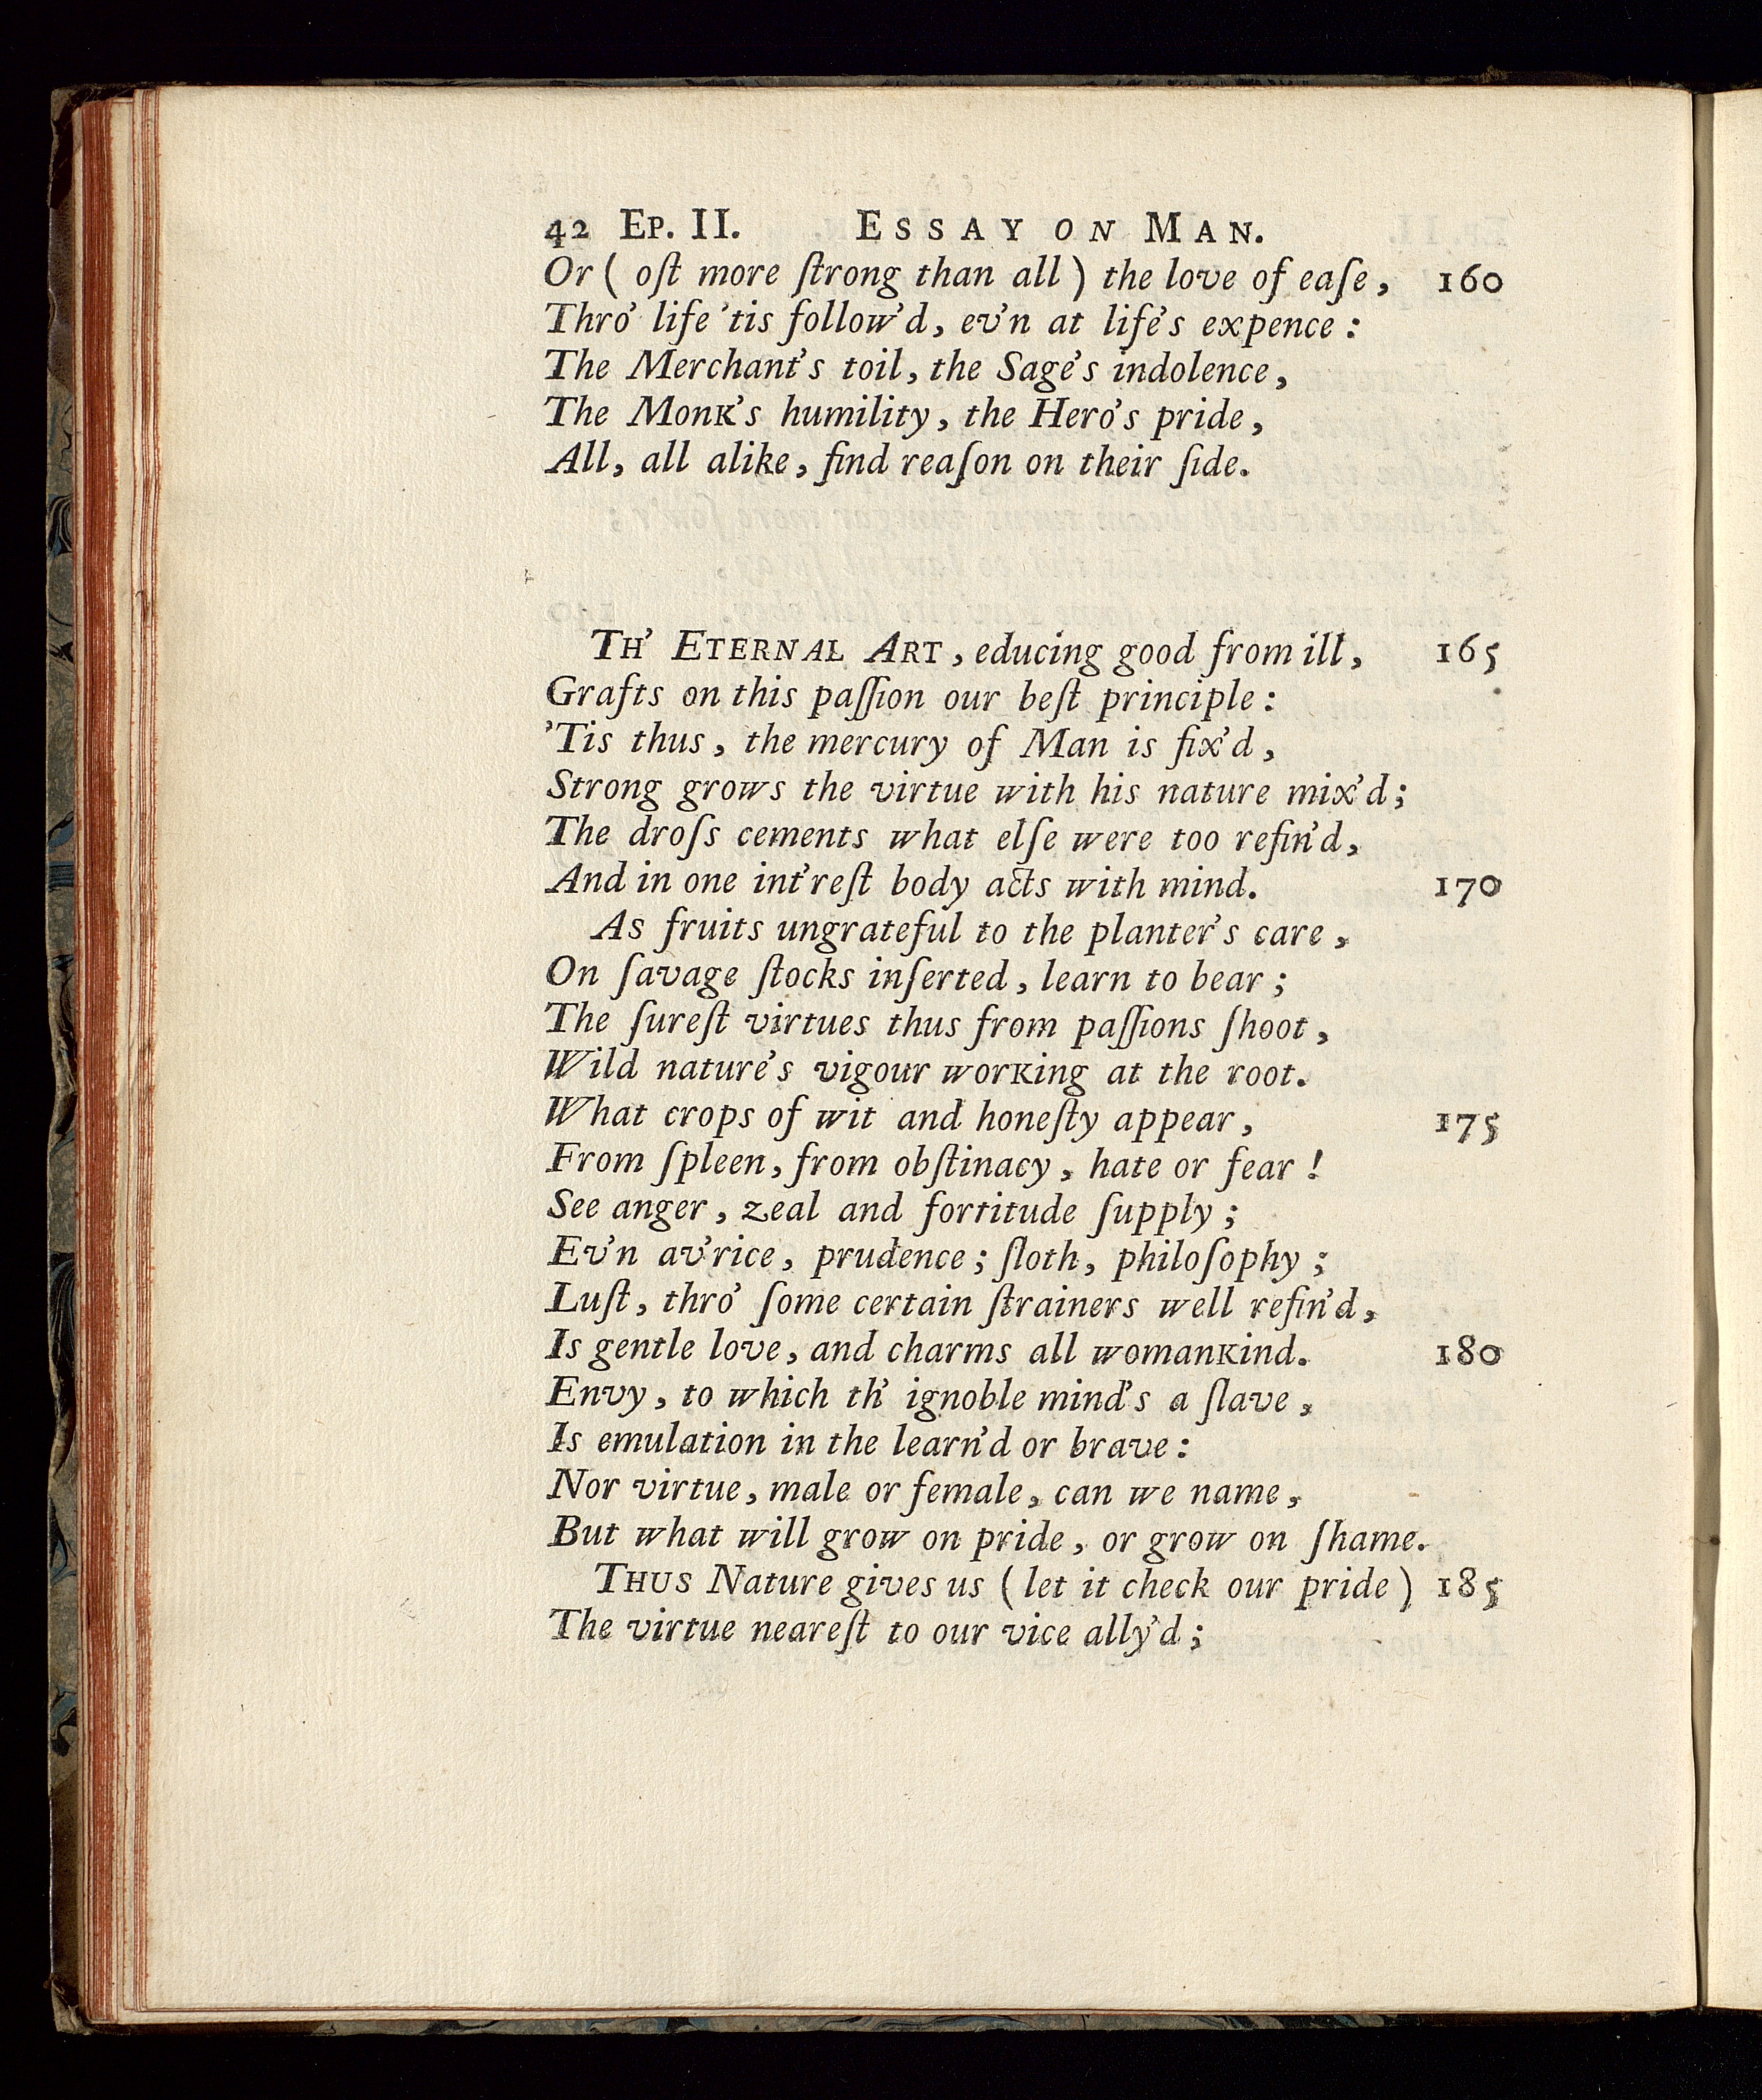 42 EP. II. ESSAY ON MAN.
Or ( oſt more ſtrong than all ) the love of eaſe, 160
Thro' life 'tis follow'd, ev'n at life's expence :
The Merchant's toil, the Sage's indolence,
The Monk's humility, the Hero's pride,
All, all alike, find reaſon on their ſide.
TH' ETERNAL ART, educing good from ill, 165
Grafts on this paſſion our beſt principle :
'Tis thus, the mercury of Man is fix'd,
Strong grows the virtue with his nature mix'd;
The droſs cements what elſe were too refin'd,
And in one int'reſt body acts with mind. 170
As fruits ungrateful to the planter's care,
On ſavage ſtocks inſerted, learn to bear ;
The ſureſt virtues thus from paſſions ſhoot,
Wild nature's vigour working at the root.
What crops of wit and honeſty appear, 175
From ſpleen, from obſtinacy, hate or fear !
See anger, zeal and fortitude ſupply ;
Ev'n av'rice, prudence ; ſloth, philoſophy ;
Luſt, thro' ſome certain ſtrainers well refin'd,
Is gentle love, and charms all womankind. 180
Envy, to which th' ignoble mind's a ſlave,
Is emulation in the learn'd or brave :
Nor virtue, male or female, can we name,
But what will grow on pride, or grow on ſhame.
THUS Nature gives us ( let it check our pride ) 185
The virtue neareſt to our vice ally'd ;